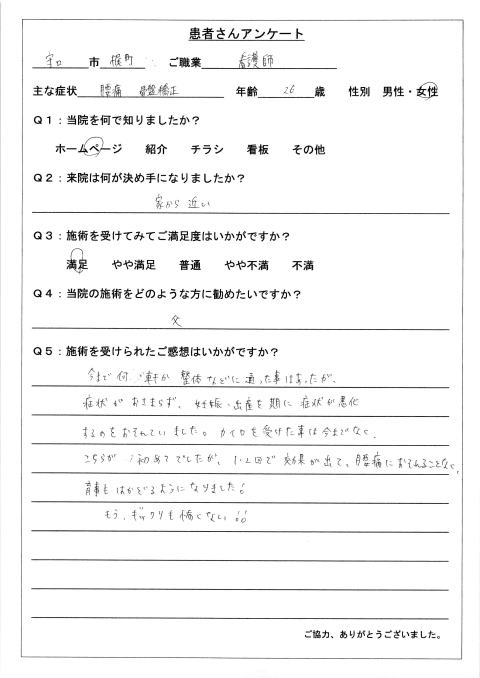 患者さんアンケート
守口市梶町 ご職業 看護師
主な症状 腰痛 骨盤矯正 年齢 26 歳 性別 男性・女性
Q1:当院を何で知りましたか?
ホームページ 紹介 チラシ 看板 その他
Q2:来院は何が決め手になりましたか?
家から近い
Q3:施術を受けてみてご満足度はいかがですか?
満足 やや満足 普通 やや不満 不満
Q4:当院の施術をどのような方に勧めたいですか?
父
Q5:施術を受けられたご感想はいかがですか?
今まで何軒か整体などに通った事はあったが、
症状がおさまらず、妊娠・出産を期に症状が悪化
するのをおそれていました。カイロを受けた事は今までなく、
こちらが初めてでしたが、1・2回で効果が出て、腰痛におそれることなく、
育事もはかどるようになりました!
もう、ギックリも怖くない!!
ご協力、ありがとうございました。